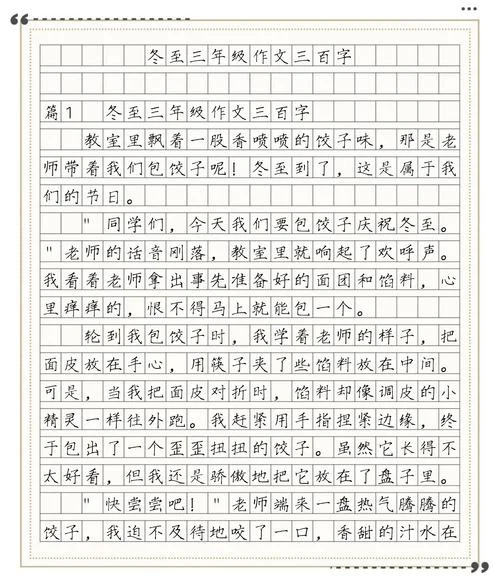 冬至三年级作文三百字
篇1 冬至三年级作文三百字
教室里飘着一股香喷喷的饺子味，那是老
师带着我们包饺子呢！冬至到了，这是属于我
们的节日。
"同学们，今天我们要包饺子庆祝冬至。
"老师的话音刚落，教室里就响起了欢呼声。
我看着老师拿出事先准备好的面团和馅料，心
里痒痒的，恨不得马上就能包一个。
轮到我包饺子时，我学着老师的样子，把
面皮放在手心，用筷子夹了些馅料放在中间。
可是，当我把面皮对折时，馅料却像调皮的小
精灵一样往外跑。我赶紧用手指捏紧边缘，终
于包出了一个歪歪扭扭的饺子。虽然它长得不
太好看，但我还是骄傲地把它放在了盘子里。
"快尝尝吧！"老师端来一盘热气腾腾的
饺子，我迫不及待地咬了一口，香甜的汁水在